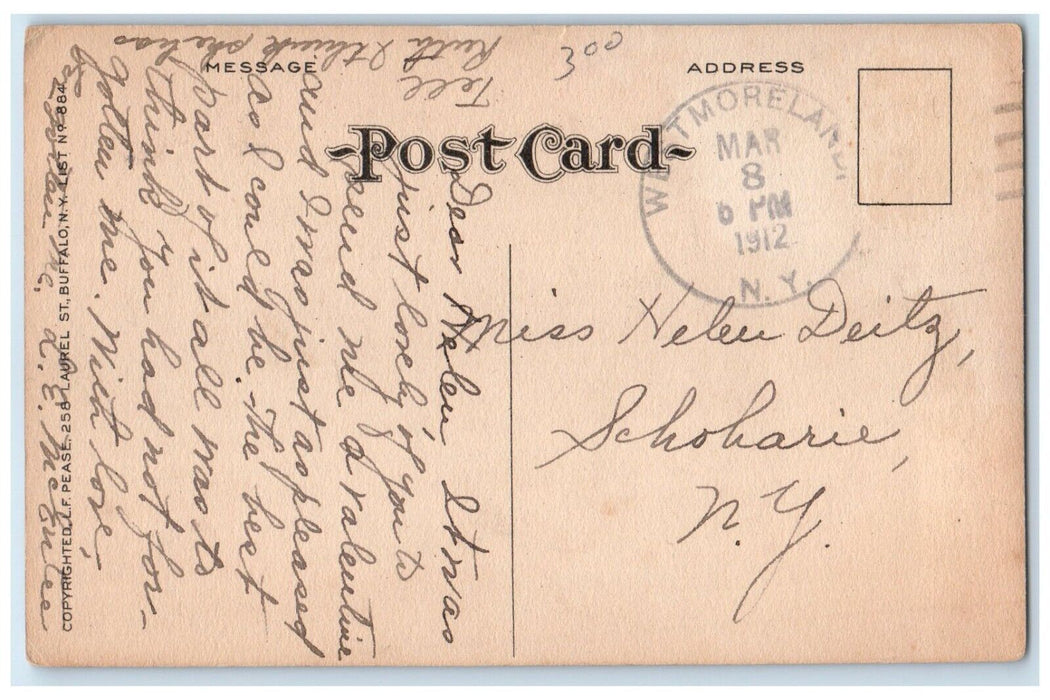 MESSAGE
ADDRESS
Post Card
300
WESTMORELAND
MAR
8
6 PM
1912
N.Y.
Miss Helen Deitz,
Schoharie,
N.Y.
Dear Helen It was
just lovely of you to
send me a valentine
and I was just as pleased
as I could be. The best
part of it all was to
think you had not for-
gotten me. With love,
Tell
Ruth I think she has
COPYRIGHTED, L.F. PEASE. 258 LAUREL ST., BUFFALO, N.Y. LIST No 884